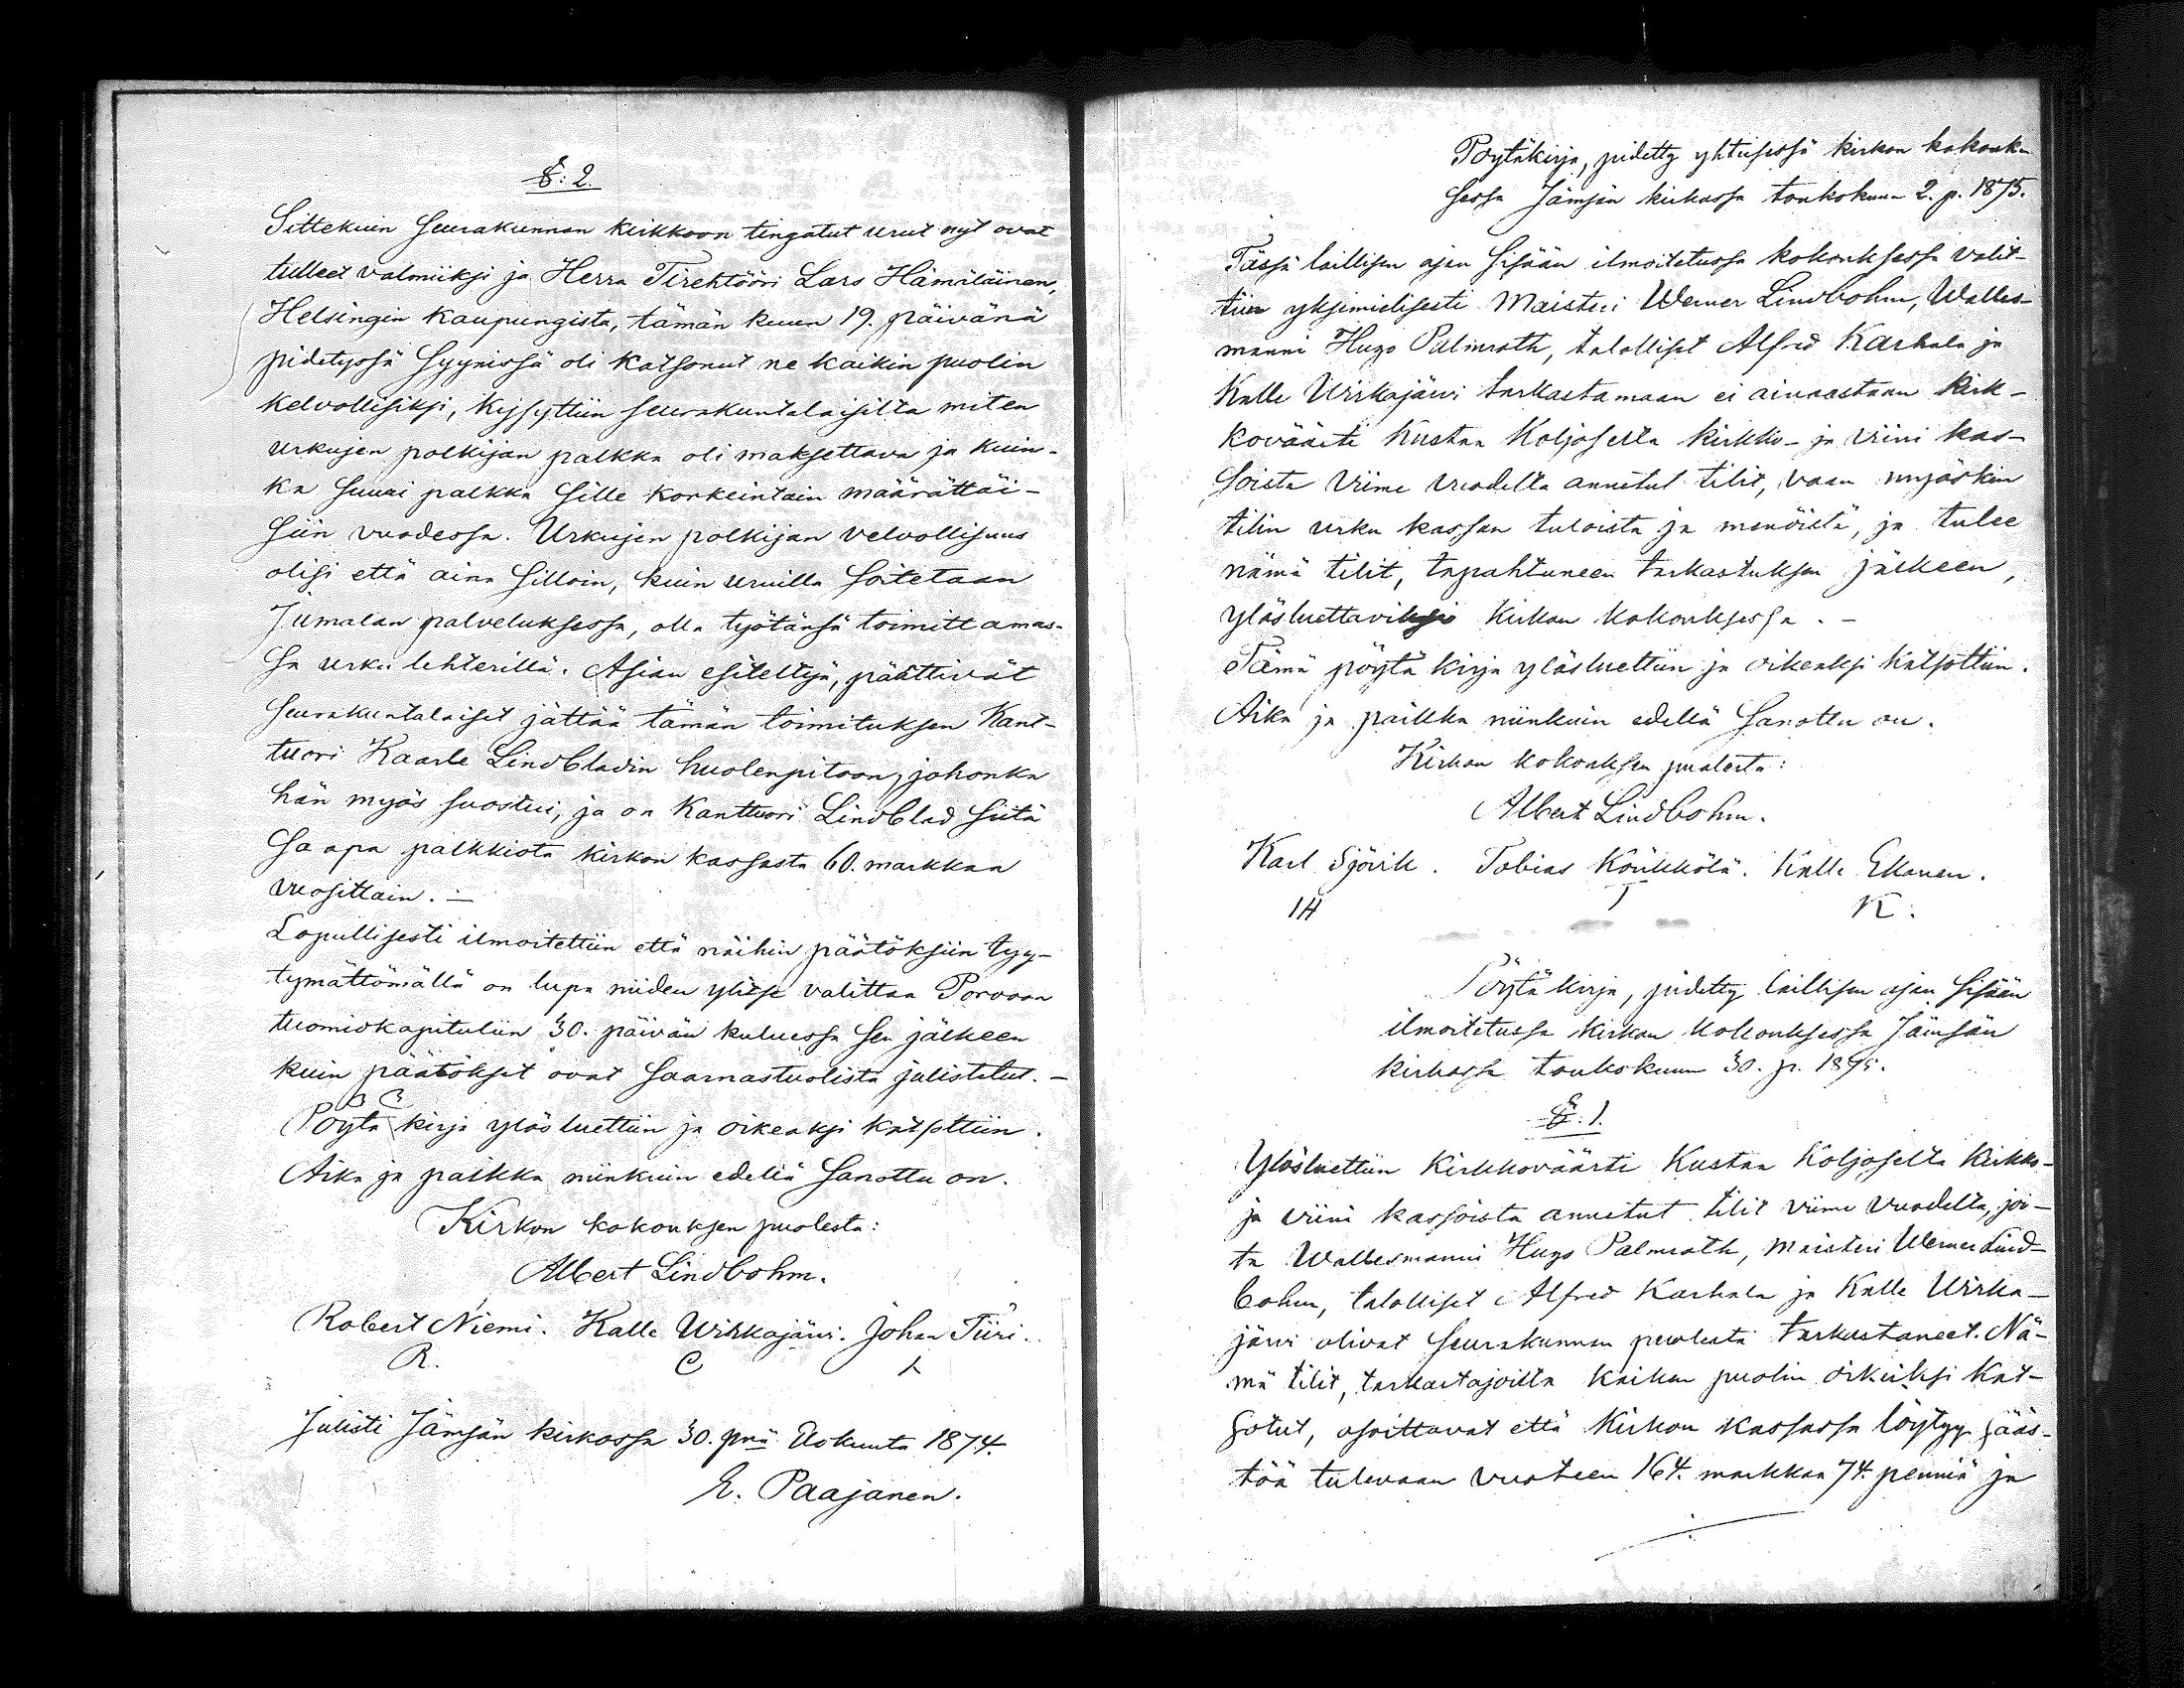 §: 2.
Sittekuin seurakunnan kirkkoon tingatut urut nyt ovat
tulleet valmiiksi ja Herra Tirehtööri Lars Hämäläinen,
Helsingin kaupungista, tämän kuun 19. päivänä
pidetyssä syynissä oli katsonut ne kaikin puolin
kelvollisiksi, kysyttiin seurakuntalaisilta miten
urkujen polkijan palkka oli maksettava ja kuin-
ka suuri palkka sille korkeintain määrättäi-
siin vuodessa. Urkujen polkijan velvollisuus
olisi että aina silloin, kuin uruilla soitetaan
Jumalan palveluksessa, olla työtänsä toimittamas-
sa urku lehterillä. Asian esiteltyä, päättivät
seurakuntalaiset jättää tämän toimituksen Kant-
tuori Kaarle Lindbladin huolenpitoon, johonka
hän myös suostui, ja on Kanttuori Lindblad siitä
saapa palkkiota kirkon kassasta 60. markkaa
vuosittain. —
Lopullisesti ilmoitettiin että näihin päätöksiin tyy-
tymättömällä on lupa niiden ylitse valittaa Porvoon
tuomiokapituliin 30. päivän kuluessa sen jälkeen
kuin päätökset ovat saarnastuolista julistetut. —
Pöytäkirja ylösluettiin ja oikeaksi katsottiin.
Aika ja paikka niinkuin edellä sanottu on.
Kirkon kokouksen puolesta:
Albert Lindbohm.
Robert Niemi. Kalle Wirkajärvi. Johan Tiiri.
R.
Julisti Jämsän kirkossa 30. pnä Elokuuta 1874.
E. Paajanen.
Pöytäkirja, pidetty yhteisessä kirkon kokouk-
sessa Jämsän kirkossa toukokuun 2. p. 1875.
Tässä laillisen ajan sisään ilmoitetussa kokouksessa valit-
tiin yksimielisesti Maisteri Werner Lindbohm, Walles-
manni Hugo Palmroth, talolliset Alfred Karhala ja
Kalle Wirkajärvi tarkastamaan ei ainoastaan kirk-
koväärti Kustaa Koljoselta kirkko- ja viini kas-
soista viime vuodelta annetut tilit, vaan myöskin
tilin urku kassan tuloista ja menoista, ja tulee
nämä tilit, tapahtuneen tarkastuksen jälkeen,
ylösluettaviksi kirkon kokouksessa. —
Tämä pöytäkirja ylösluettiin ja oikeaksi katsottiin.
Aika ja paikka niinkuin edellä sanottu on.
Kirkon kokouksen puolesta:
Albert Lindbohm.
Karl Sjövik. Tobias Könkkölä. Kalle Ekonen.
IH T K.
Pöytäkirja, pidetty laillisen ajan sisään
ilmoitetussa kirkon kokouksessa Jämsän
kirkossa toukokuun 30. p. 1875.
§: 1.
Ylösluettiin kirkkoväärti Kustaa Koljoselta kirkko-
ja viini kassoista annetut tilit viime vuodelta, joi-
ta Wallesmanni Hugo Palmroth, Maisteri Werner Lind-
bohm, talolliset Alfred Karhala ja Kalle Wirka-
järvi olivat seurakunnan puolesta tarkastaneet. Nä-
mä tilit, tarkastajoilta kaiken puolin oikeiksi kat-
sotut, osoittavat että kirkon kassassa löytyy sääs-
töä tulevaan vuoteen 164. markkaa 74. penniä ja